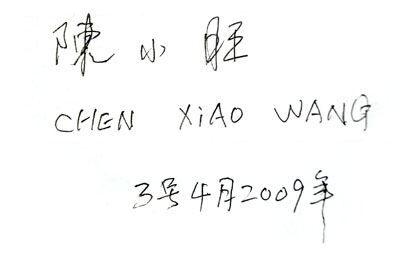 陳小旺
CHEN XiAO WANG
3号4月2009年